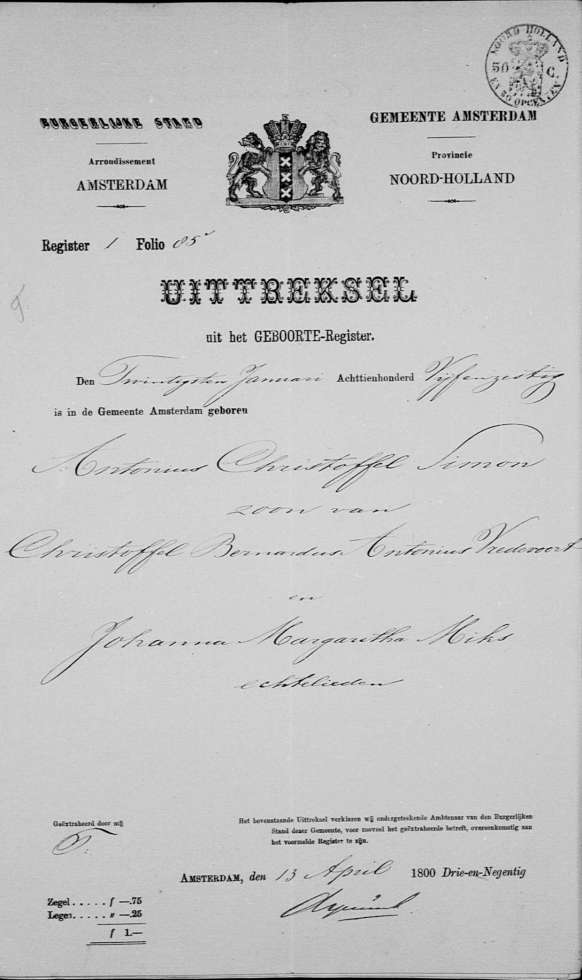 NOORD HOLLAND
50 C.
EN 50 OPCENTEN
BURGERLIJKE STAND
GEMEENTE AMSTERDAM
Arrondissement
AMSTERDAM
Provincie
NOORD-HOLLAND
Register 1 Folio 85v
UITTREKSEL
uit het GEBOORTE-Register.
Den Twintigsten Januari Achttienhonderd Vijfenzestig
is in de Gemeente Amsterdam geboren
Antonius Christoffel Simon
zoon van
Christoffel Bernardus Antonius Vredevoort
en
Johanna Margaretha Miks
echtelieden
Geëxtraheerd door mij
Het bovenstaande Uittreksel verklaren wij ondergeteekende Ambtenaar van den Burgerlijken
Stand dezer Gemeente, voor zooveel het geëxtraheerde betreft, overeenkomstig aan
het voormelde Register te zijn.
AMSTERDAM, den 13 April 1800 Drie-en-Negentig
Zegel ..... f —.75
Leges ..... " —.25
f 1.—